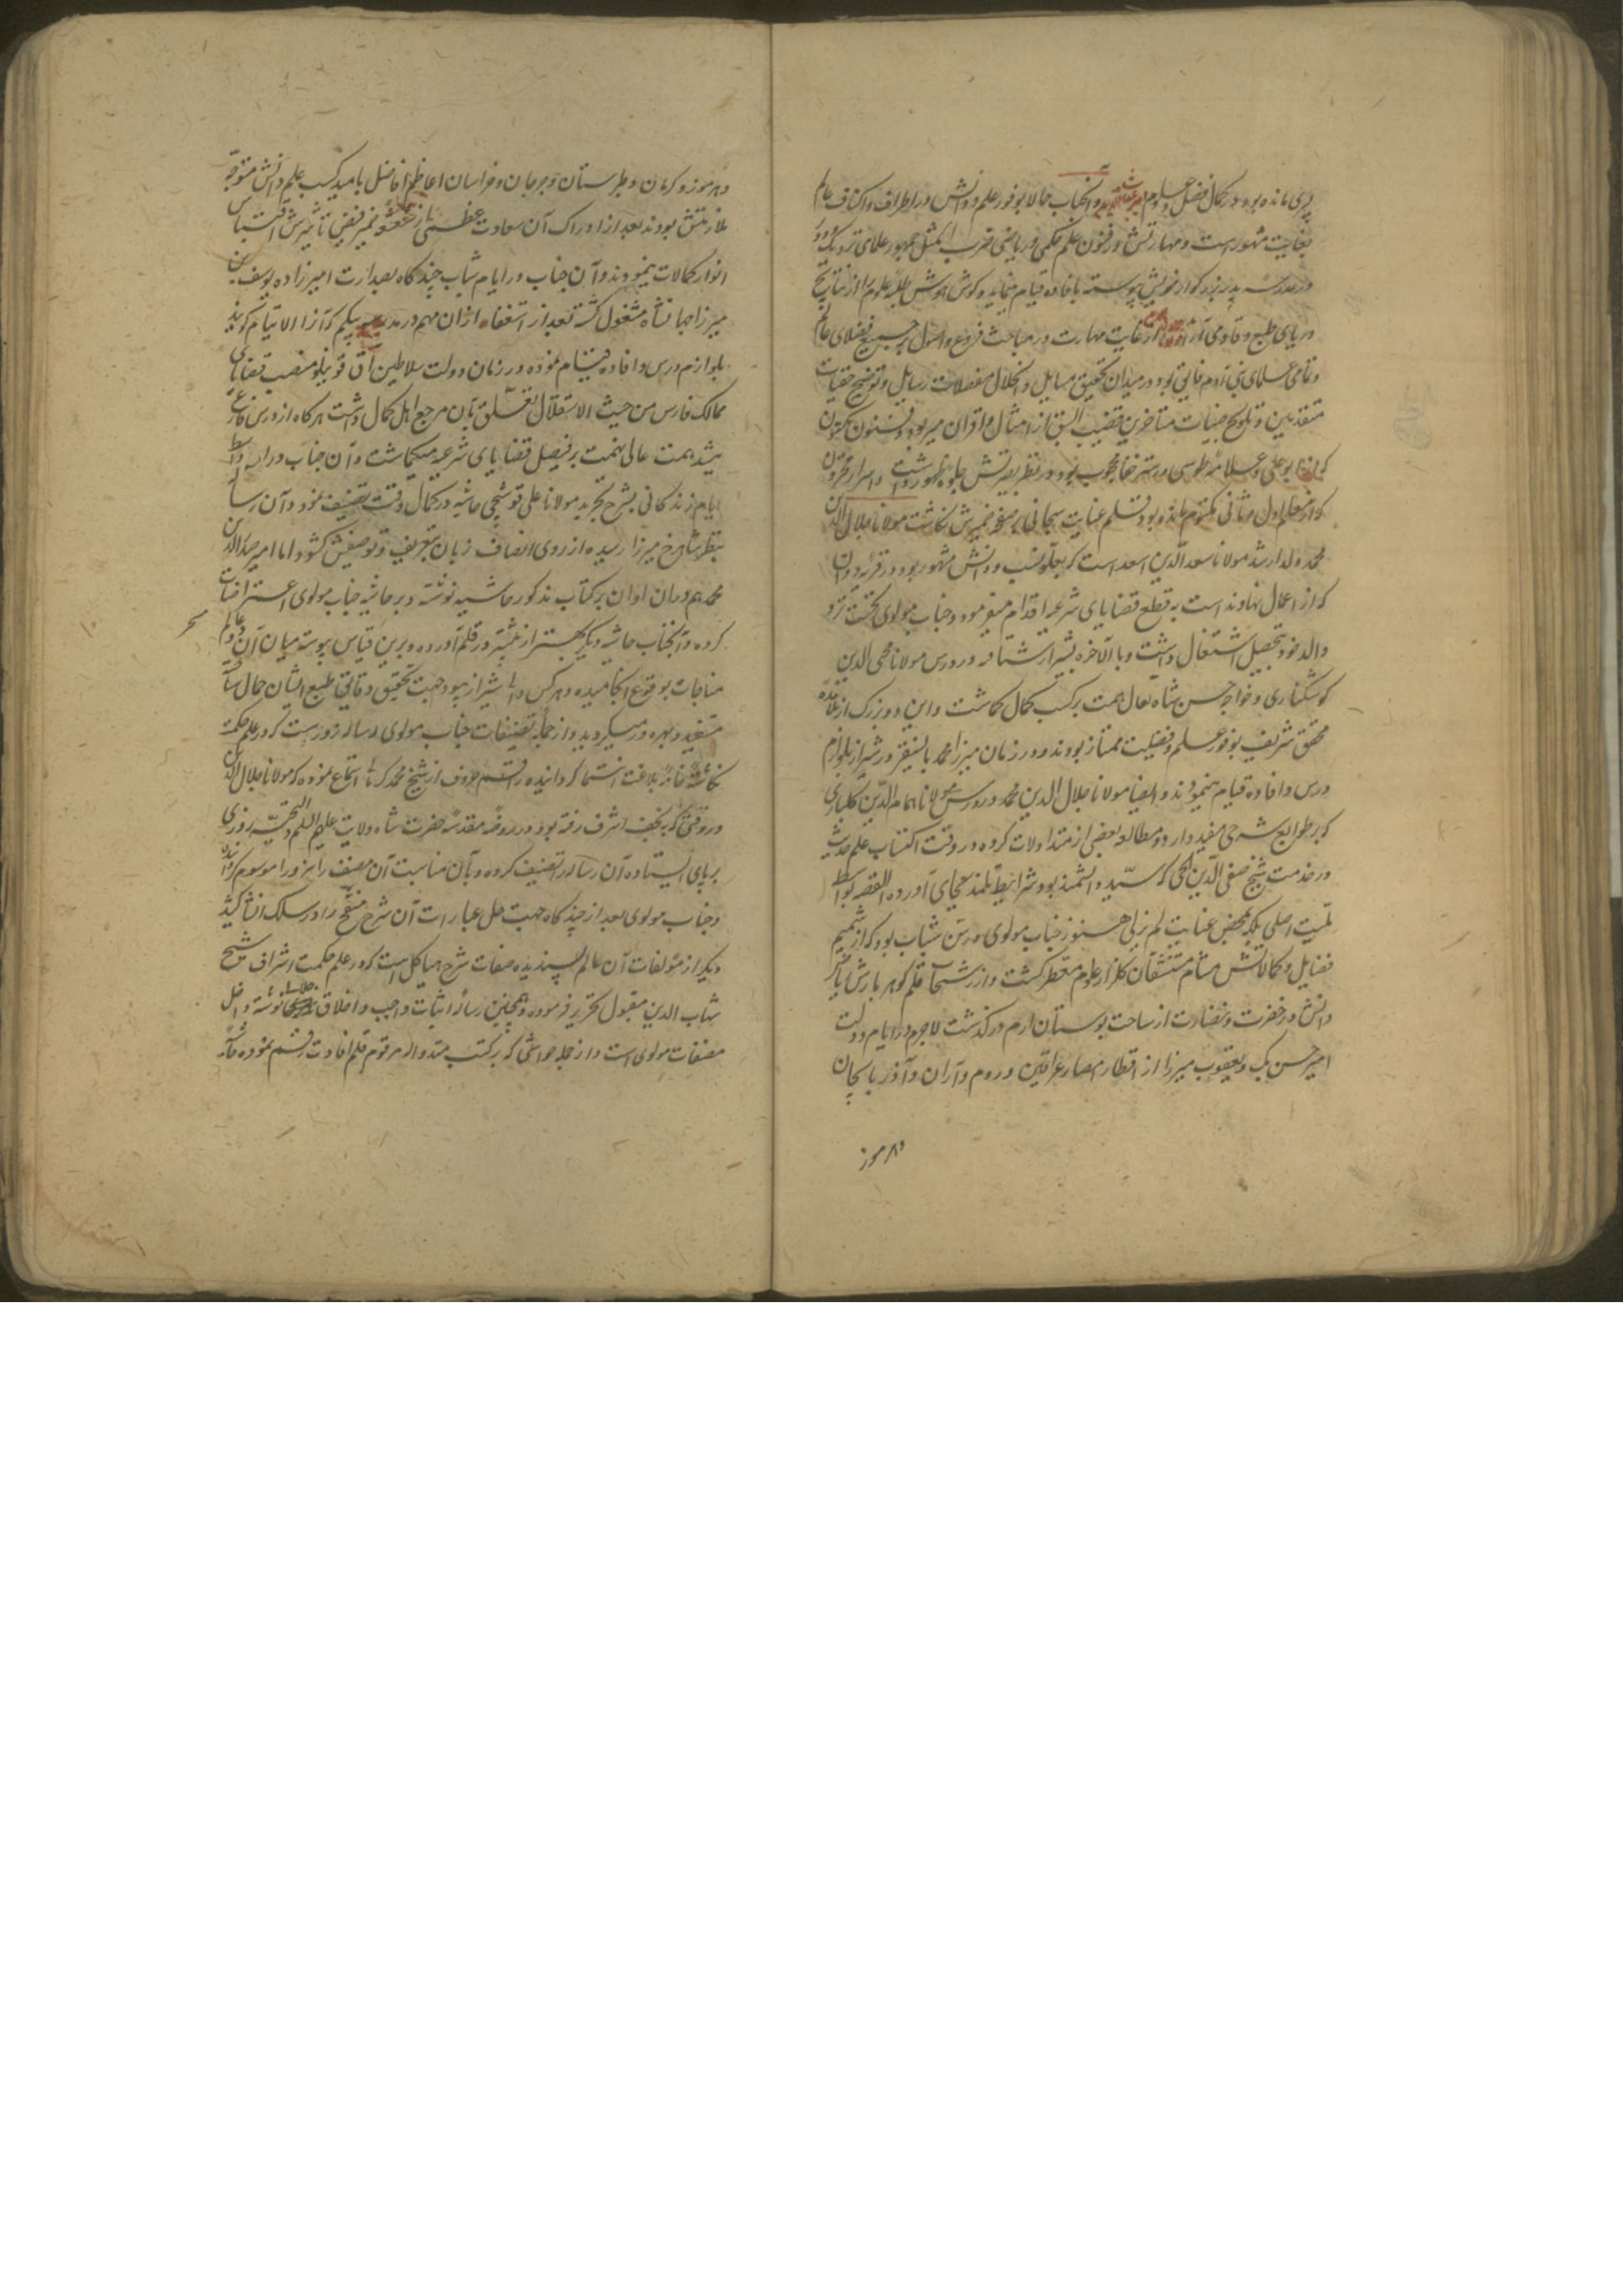 پسری مانده بود در کمال فضل و علوم امیر غیاث الدین و آنجناب حالا بوفور علم و دانش در اطراف و اکناف عالم
بغایت مشهورست و مهارتش در فنون علم حکمی و ریاضی ضرب المثل جمهور علمای نزدیک و دور
و در مدرسه پدر بزرگوار خویش پیوسته بافاده قیام مینماید و گوش هوش طلبه علوم را از نتایج
دریای طبع وقاد می آراید از غایت مهارت در مباحث فروع و اصول بر جمیع فضلای عالم
و تمامی علمای بنی آدم فایق بود و در میدان تحقیق مسایل و انحلال معضلات رسایل و توضیح خفیات
متقدمین و تلویح جنیات متاخرین قصب السبق از امثال و اقران میربود و فنون مکنون
که از بوعلی و علامه طوسی در ستر خفا محجوب بود در نظر بصیرتش جلوه ظهور داشت و اسرار مخزون
که از معلم اول و ثانی مکتوم مانده بود بقلم عنایت سبحانی بر صفحه ضمیرش نگاشت مولانا جلال الدین
محمد ولد ارشد مولانا سعد الدین اسعد است که بعلو نسب و دانش مشهور بود و در قریه دوان
که از اعمال نهاوند است به قطع قضایای شرعیه اقدام میفرمود و جناب مولوی نخست نزد
والد خود بتحصیل اشتغال داشت و بالآخره بشیراز شتافته در درس مولانا محی الدین
کوشکناری و خواجه حسن شاه بقال همت بر کسب کمال گماشت و این دو بزرگ از تلامذه
محقق شریف بوفور علم و فضیلت ممتاز بودند و در زمان میرزا محمد بایسنغر در شیراز بلوازم
درس و افاده قیام مینمودند و ایضا مولانا جلال الدین محمد در درس مولانا همام الدین گلباری
که بر طوالع شرحی مفید دارد و مطالعه بعضی از متداولات کرده در وقت اکتساب علم حدیث
در خدمت شیخ صفی الدین ایجی که سید دانشمند بود شرایط تلمذ بجای آورده القصه بواسطه
قابلیت اصلی بلکه بمحض عنایت لم یزلی هنوز جناب مولوی در سن شباب بود که از شمیم
فضایل و کمالاتش مشام متنشقان گلزار علوم معطر گشت و از رشحات قلم گوهر بارش باغ
دانش در خضرت و نضارت از ساحت بوستان ارم درگذشت لاجرم در ایام دولت
امیر حسن بک و یعقوب میرزا از اقطار امصار عراقین و روم و آران و آذربایجان
و هرموز
و هرموز و کرمان و طبرستان و جرجان و خراسان اعاظم افاضل بامید کسب علم و دانش متوجه
ملازمتش بودند بعد از ادراک آن سعادت عظمی از اشعه ضمیر فیض تاثیرش اقتباس
انوار کمالات مینمودند و آن جناب در ایام شباب چندگاه بصدارت امیرزاده یوسف بن
میرزا جهانشاه مشغول گشته بعد از استعفاء از آن مهم در مدرسه بیگم که آنرا دار الایتام گویند
بلوازم درس و افاده قیام نموده در زمان دولت سلاطین آق قوینلو منصب قضای
ممالک فارس من حیث الاستقلال تعلق بآن مرجع اهل کمال داشت هرگاه از درس فارغ
میشد همت عالی نهمت بر فیصل قضایای شرعیه میگماشت و آن جناب در اواسط
ایام زندگانی بشرح تجرید مولانا علی قوشچی حاشیه در کمال دقت تصنیف نمود و آن رساله
بنظر شاهرخ میرزا رسیده از روی انصاف زبان بتعریف و توصیفش گشود اما امیر صدرالدین
محمد هم در آن اوان بر کتاب مذکور حاشیه نوشته و بر حاشیه جناب مولوی اعتراضات
کرده و آنجناب حاشیه دیگر بهتر از نخستین در قلم آورده و برین قیاس پیوسته میان آن دو عالم
مباحثات بوقوع انجامیده و هرکس در شیراز میبود جهت تحقیق دقایق طبع ایشان حمال شاه
مستفید و بهره ور میگردید و از جمله تصنیفات جناب مولوی رساله زوراست که در علم حکمت
نگاشته خامه بلاغت انتما گردانیده راقم حروف از شیخ محمد کربلا استماع نموده که مولانا جلال الدین
در وقتی که به نجف اشرف رفته بود در روضه مقدسه حضرت شاه ولایت علیه السلام و التحیه روزی
بر پای ایستاده آن رساله را تصنیف کرده و بآن مناسبت آن مصنف را بزورا موسوم گردانیده
و جناب مولوی بعد از چندگاه جهت حل عبارات آن شرح منقح را در سلک انشا کشید
دیگر از مؤلفات آن عالم پسندیده صفات شرح هیاکل است که در علم حکمت اشراق شیخ
شهاب الدین مقتول تحریر فرموده و همچنین رساله اثبات واجب و اخلاق جلالی نوشته داخل
مصنفات مولوی است و از جمله حواشی که بر کتب متداوله مرقوم قلم افادت رقم نموده